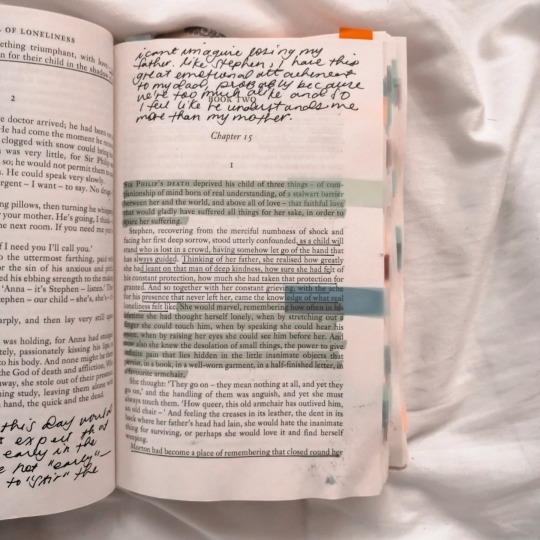 L OF LONELINESS
ething triumphant, with love
n for their child in the shadow
2
e doctor arrived; he had been
He had come the moment he
clogged with snow could bring
was very little, for Sir Philip
so; he would not permit them to
. He could speak very slowly.
rgent – I want – to say. No drug
ng pillows, then turning he
your mother. He's going, I
he next room. If you need me
f I need you I'll call you.'
o the uttermost farthing, paid
or the sin of his anxious and
ed his ebbing strength to the making
e. 'Anna – it's Stephen – listen.' The
ephen – our child – she's, she's – it
arply, and then lay very still upon
was holding, for Anna had
tely, passionately kissing his lips,
to his body. And none might be there
the God of death and affliction. Wh
way, she stole out of their presence
ning study, leaving them alone with
hand, the quick and the dead.
this day would
expect that
early in the
not "early"
to "stir" the
i cant imagine losing my
father. like Stephen, i have this
great emotional attachment
to my dad, probably because
we're too much alike and so
I feel like he understands me
more than my mother.
BOOK TWO
Chapter 15
1
SIR PHILIP'S DEATH deprived his child of three things – of com-
panionship of mind born of real understanding, of a stalwart barrier
between her and the world, and above all of love – that faithful love
that would gladly have suffered all things for her sake, in order to
spare her suffering.
Stephen, recovering from the merciful numbness of shock and
facing her first deep sorrow, stood utterly confounded, as a child will
stand who is lost in a crowd, having somehow let go of the hand that
has always guided. Thinking of her father, she realised how greatly
she had leant on that man of deep kindness, how sure she had felt of
his constant protection, how much she had taken that protection for
granted. And so together with her constant grieving, with the ache
for his presence that never left her, came the knowledge of what real
loneliness felt like. She would marvel, remembering how often in his
lifetime she had thought herself lonely, when by stretching out a
finger she could touch him, when by speaking she could hear his
voice, when by raising her eyes she could see him before her. And
now also she knew the desolation of small things, the power to give
infinite pain that lies hidden in the little inanimate objects that
persist, in a book, in a well-worn garment, in a half-finished letter, in
a favourite armchair.
She thought: 'They go on – they mean nothing at all, and yet they
go on,' and the handling of them was anguish, and yet she must
always touch them. 'How queer, this old armchair has outlived him,
an old chair –' And feeling the creases in its leather, the dent in its
back where her father's head had lain, she would hate the inanimate
thing for surviving, or perhaps she would love it and find herself
weeping.
Morton had become a place of remembering that closed round her